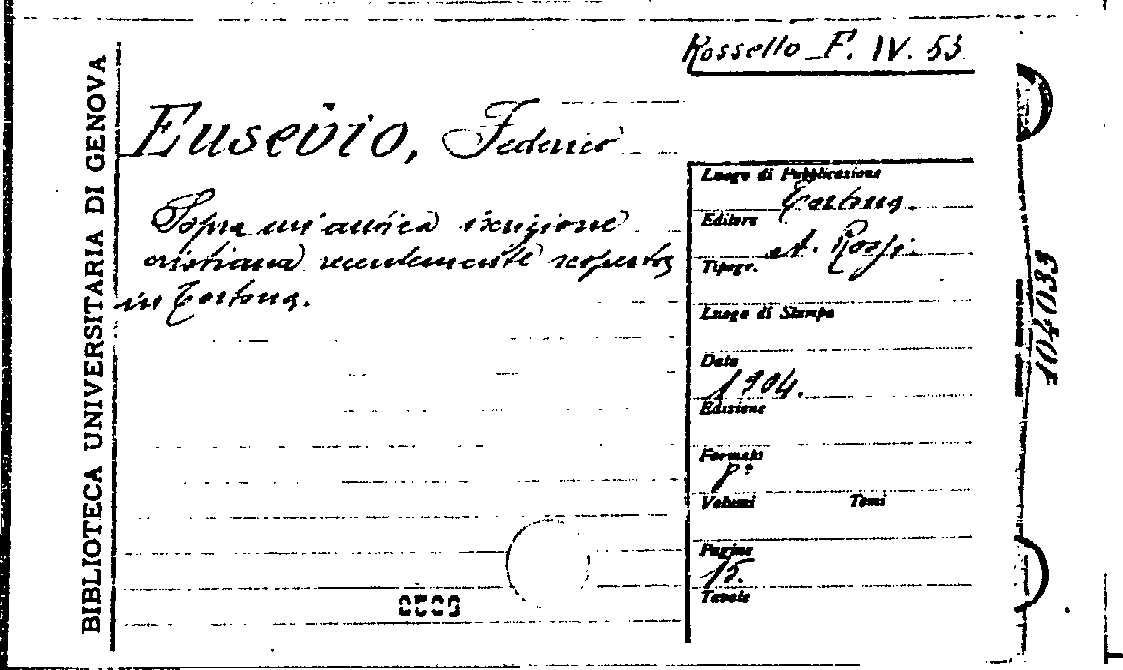 Rossello F. IV. 53
BIBLIOTECA UNIVERSITARIA DI GENOVA
Eusebio, Federico
Sopra un'antica iscrizione
cristiana recentemente scoperta
in Tortona.
Luogo di Pubblicazione
Tortona.
Editore
A. Rossi.
Tipogr.
Luogo di Stampa
Data
1904.
Edizione
Formato
Volumi Tomi
Pagine
15.
Tavole
104033